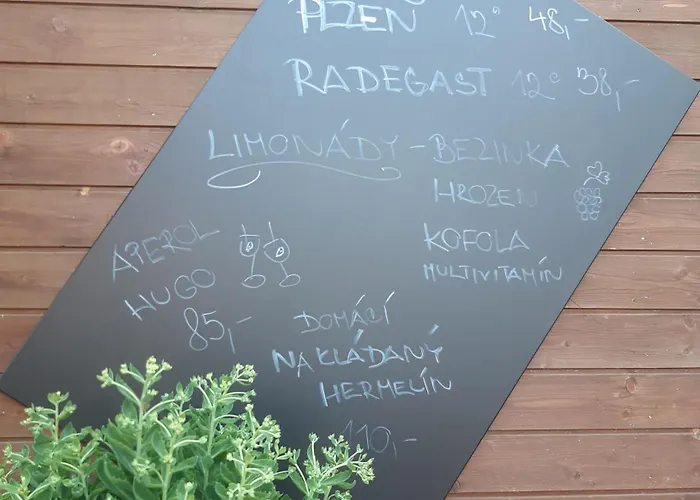 PLZEŇ 12° 48,-
RADEGAST 12° 38,-
LIMONÁDY - BEZINKA
HROZEN
KOFOLA
MULTIVITAMÍN
APEROL
HUGO
85,-
DOMÁCÍ
NAKLÁDANÝ
HERMELÍN
110,-